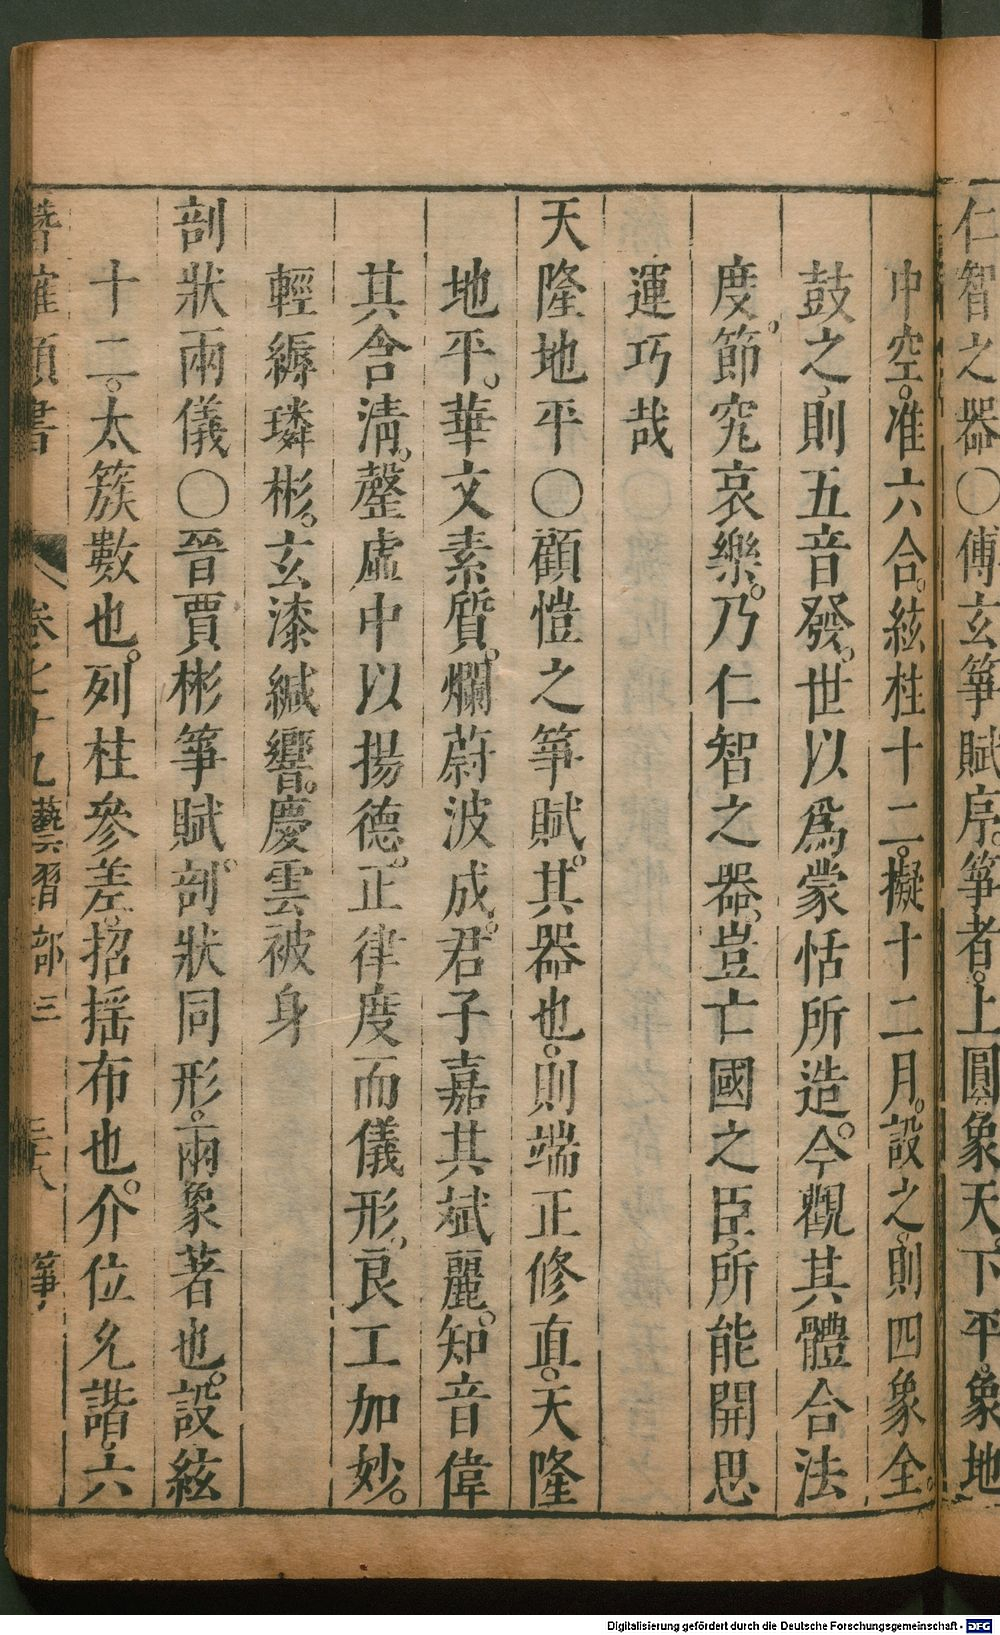 仁智之器〇傅玄箏賦序。箏者。上圓象天。下平。象地
中空。准六合。絃柱十二。擬十二月。設之。則四象全。
鼓之。則五音發。世以爲蒙恬所造。今觀其體合法
度。節究哀樂。乃仁智之器。豈亡國之臣。所能開思
運巧哉
天隆地平〇顧愷之箏賦。其器也。則端正修直。天隆
地平。華文素質。爛蔚波成。君子嘉其斌麗。知音偉
其含清。罄虛中以揚德。正律度而儀形。良工加妙。
輕縟璘彬。玄漆緘響。慶雲被身
剖狀兩儀〇晉賈彬箏賦。剖狀同形。兩象著也。設絃
十二。太簇數也。列柱參差。招搖布也。介位允諧。六
潛確類書 卷七十九 藝習部三 三十八 箏
Digitalisierung gefördert durch die Deutsche Forschungsgemeinschaft - DFG